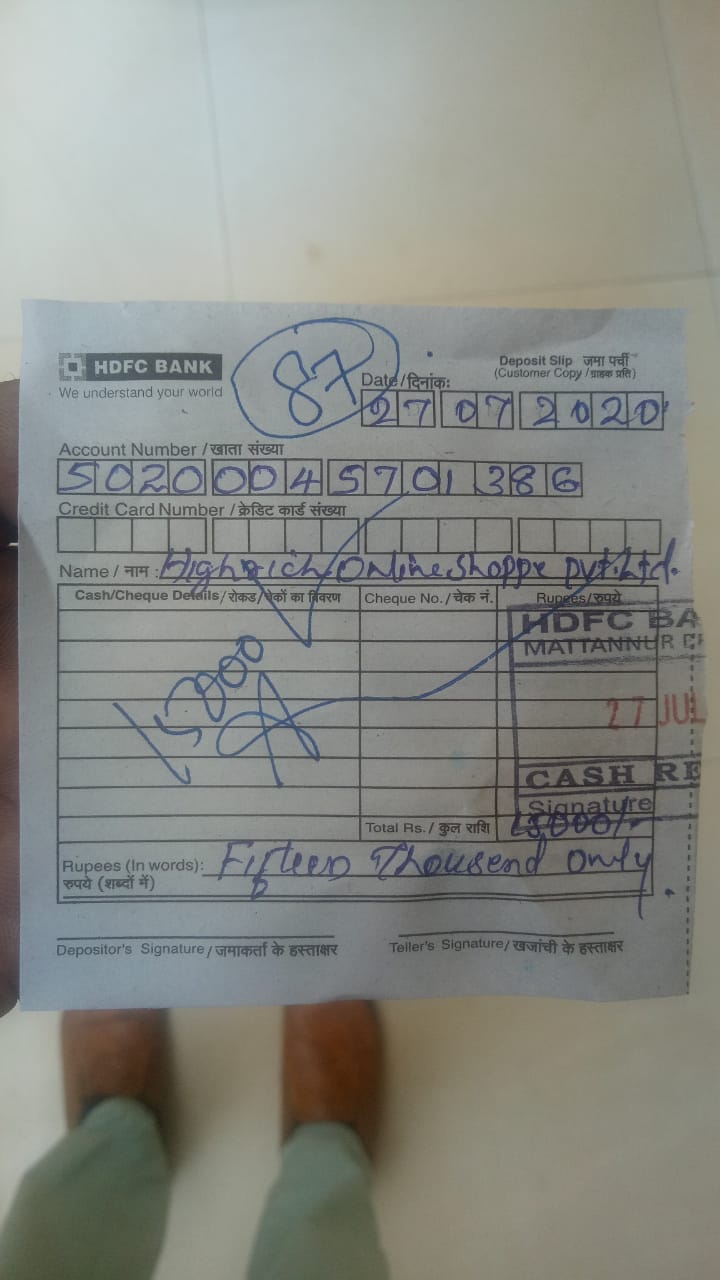 HDFC BANK
We understand your world
87
Deposit Slip जमा पर्ची
(Customer Copy / ग्राहक प्रति)
Date / दिनांक:
27 07 2020
Account Number / खाता संख्या
50200045701386
Credit Card Number / क्रेडिट कार्ड संख्या
Name / नाम : Highrich Online Shoppe Pvt. Ltd.
Cash/Cheque Details / रोकड/चेकों का विवरण Cheque No. / चेक नं. Rupees/रुपये
HDFC BA
MATTANNUR
15000
27 JUL
CASH RE
Signature
Total Rs. / कुल राशि 15,000/-
Rupees (In words): Fifteen Thousend only
रुपये (शब्दों में)
Depositor's Signature / जमाकर्ता के हस्ताक्षर Teller's Signature / खजांची के हस्ताक्षर